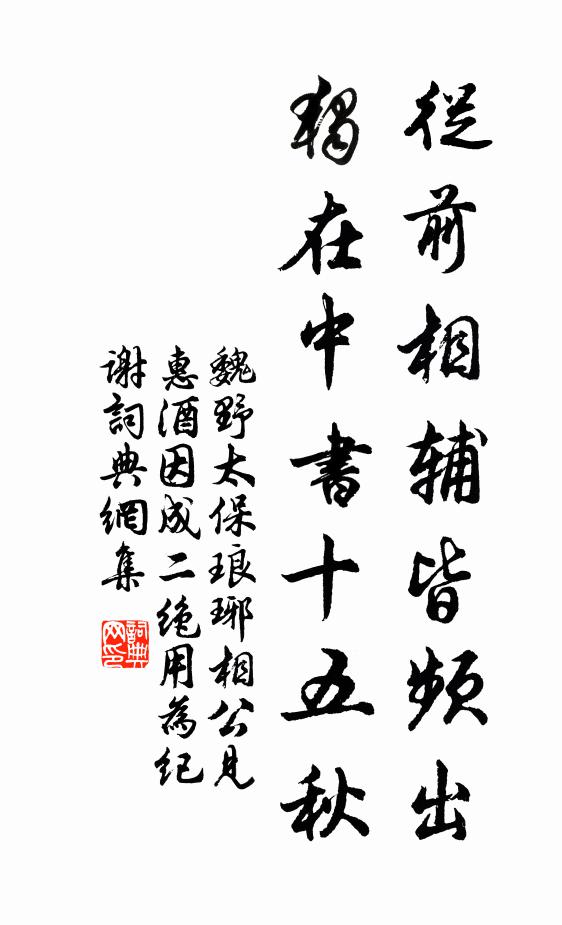 從前相輔皆頻出
獨在中書十五秋
魏野太保琅琊相公見
惠酒因成二絕用為紀
謝詞典網集
詞典网印